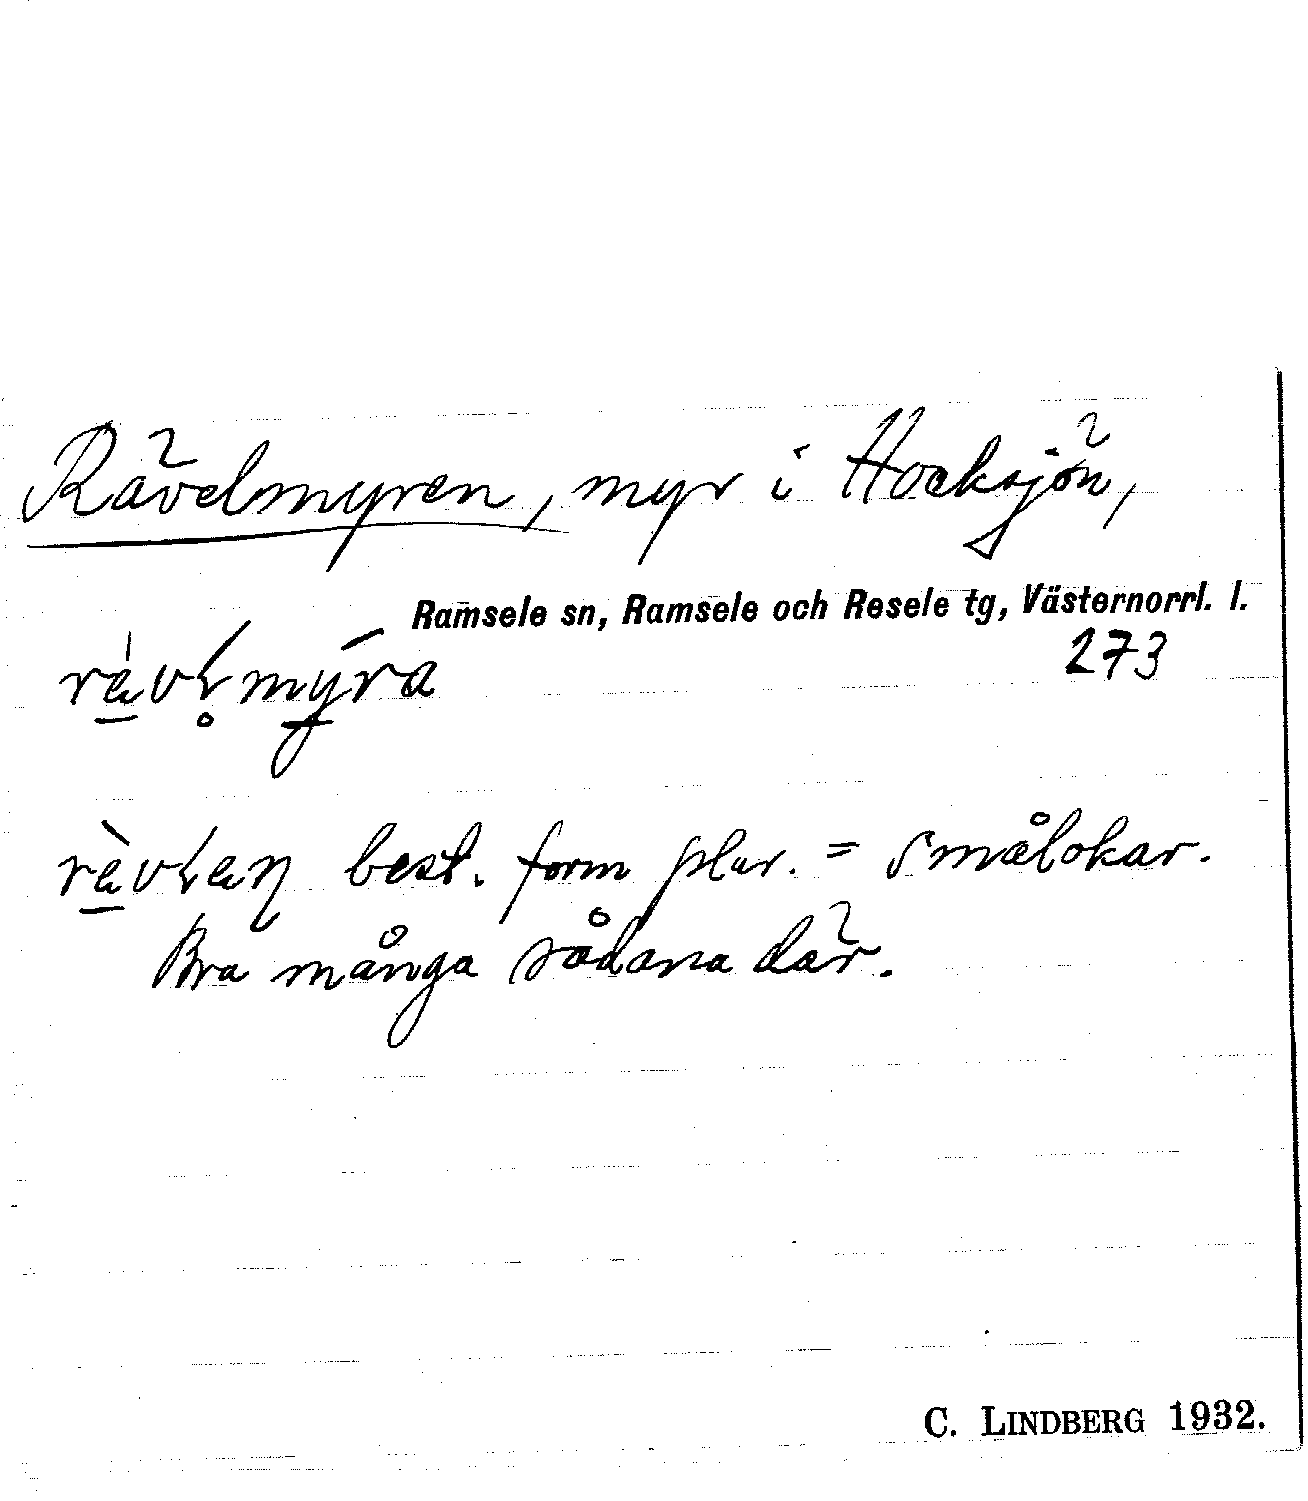 Rävelmyren, myr i Hocksjön,
Ramsele sn, Ramsele och Resele tg, Västernorrl. l.
273
best. form plur. = smålokar.
Bra många sådana där.
C. LINDBERG 1932.